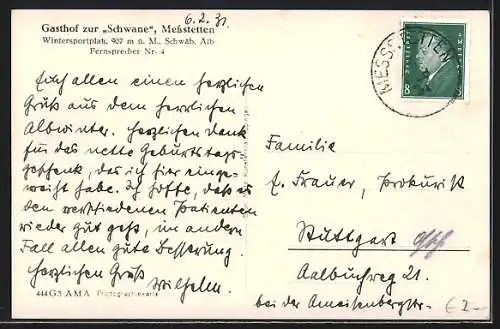 6.2.31.
Gasthof zur „Schwane", Meßstetten
Wintersportplatz, 907 m ü. M., Schwäb. Alb
Fernsprecher Nr. 4
MESSSTETTEN
8
Euch allen einen herzlichen
Gruß aus dem herrlichen
Albwinter. Herzlichen Dank
für das nette Geburtstags-
geschenk, das ich hier einge-
weiht habe. Ich hoffe, daß es
den verschiedenen Patienten
wieder gut geht, im andern
Fall allen gute Besserung.
Herzlichen Gruß
Wilhelm.
444 G3 AMA Photographiekarte
Familie
E. Frauer, Prokurist
Stuttgart
Aalbuchweg 21.
bei der Ameisenbergstr.
£ 2.-